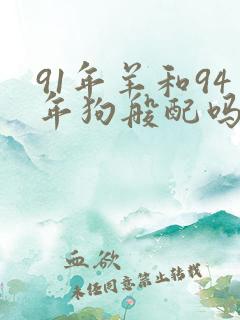 91年羊和94
年狗般配吗
血欲
未经同意禁止转载